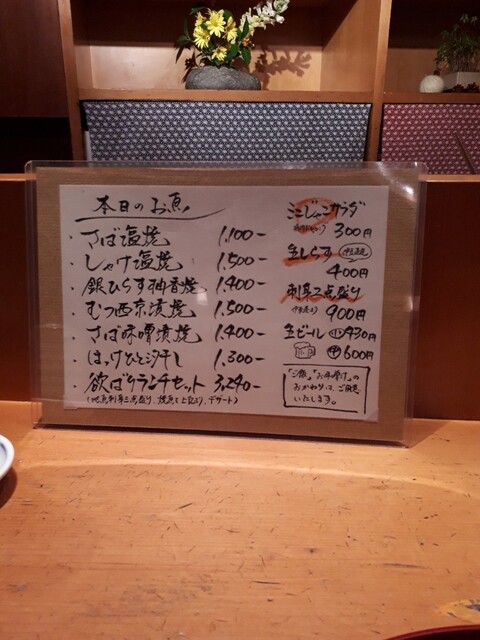 本日のお魚
さば塩焼 1,100-
しゃけ塩焼 1,500-
銀ひらす神香焼 1,400-
むつ西京漬焼 1,500-
さば味噌漬焼 1,400-
ほっけひと汐干し 1,300-
欲ばりランチセット 3,240-
(地魚刺身三点盛り、焼魚 デザート)
ミニじゃこサラダ
300円
生しらす
400円
刺身2点盛り
900円
生ビール 小 430円
中 600円
「ご飯」「お味噌汁」の
おかわりは、ご用意
いたします。